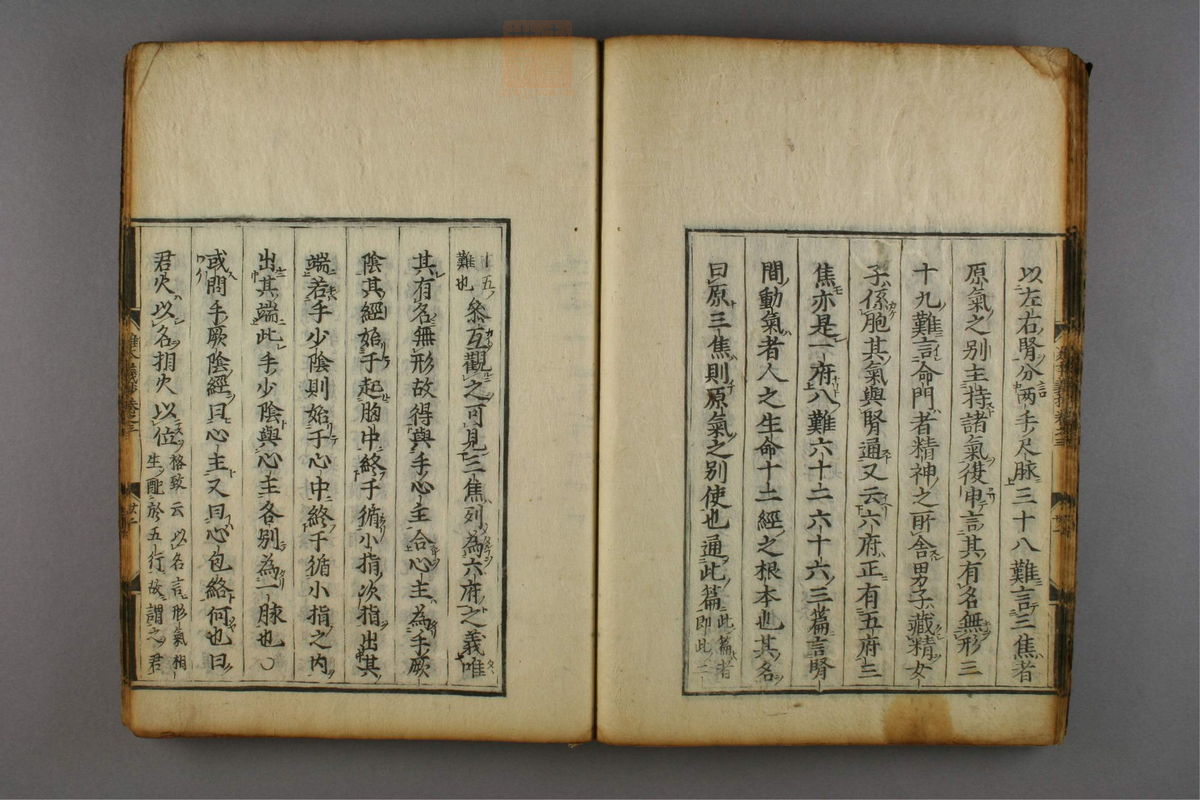 以左右腎分兩手尺脉三十八難言三焦者
原氣之别主持諸氣復申言其有名無形三
十九難言命門者精神之所舍男子藏精女
子係胞其氣與腎通又云六府正有五府三
焦亦是一府八難六十二六十六三篇言腎
間動氣者人之生命十二經之根本也其名
曰原三焦則原氣之别使也通此篇此篇者即此三
十五難也叅互觀之可見三焦列為六府之義唯
其有名無形故得與手心主合心主為手厥
陰其經始于起胸中終于循小指次指出其
端若手少陰則始于心中終于循小指之内
出其端此手少陰與心主各别為一脉也○
或問手厥陰經曰心主又曰心包絡何也曰
君火以名相火以位格致云以名言形氣相生配於五行故謂之君